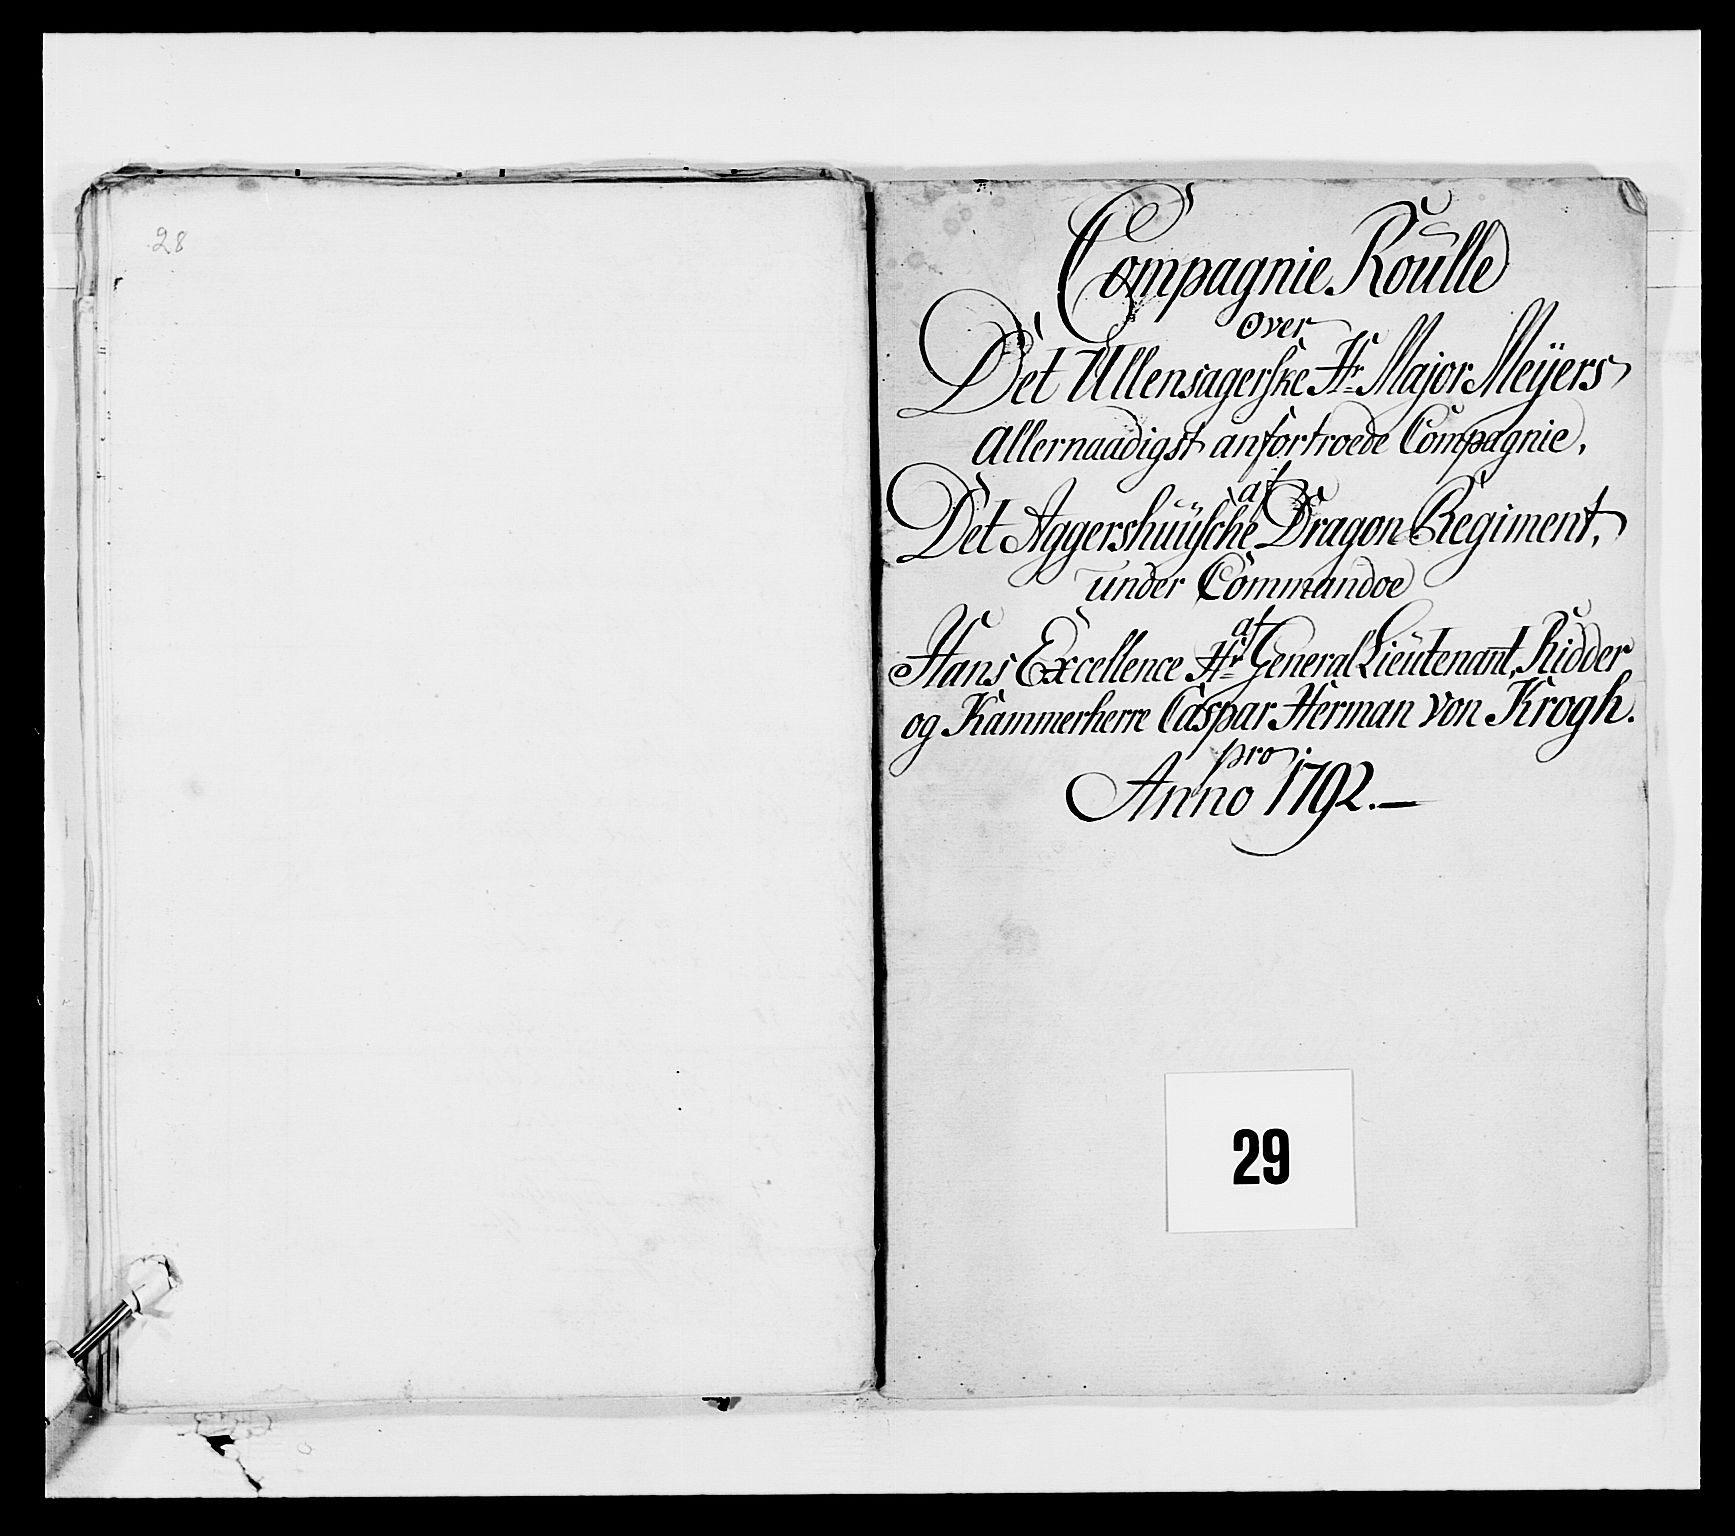 28
Compagnie Roulle
over
Det Ullensagerske Hr Major Meÿers
allernaadigst anfortroede Compagnie,
af
Det Aggershuüsche Dragon Regiment,
under Commandoe
af
Hans Excellence Hr General Lieutenant, Ridder
og Kammerherre Caspar Herman von Krogh.
pro
Anno 1792.—
29